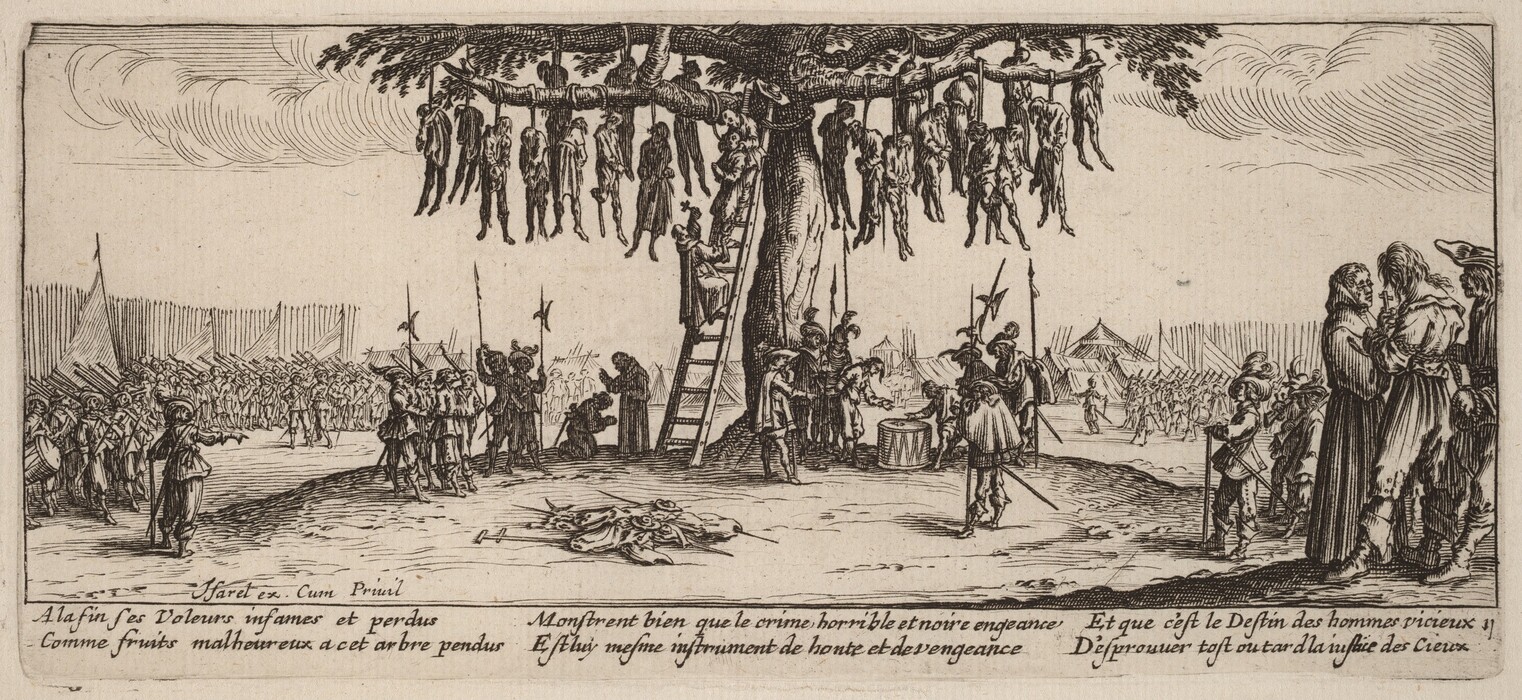 Jsarel ex. Cum Priuil
A la fin ses Voleurs infames et perdus
Comme fruits malheureux a cet arbre pendus
Monstrent bien que le crime, horrible et noire engeance
Est luy mesme instrument de honte et de vengeance
Et que c'est le Destin des hommes vicieux
D'esprouuer tost ou tard la iustice des Cieux
11